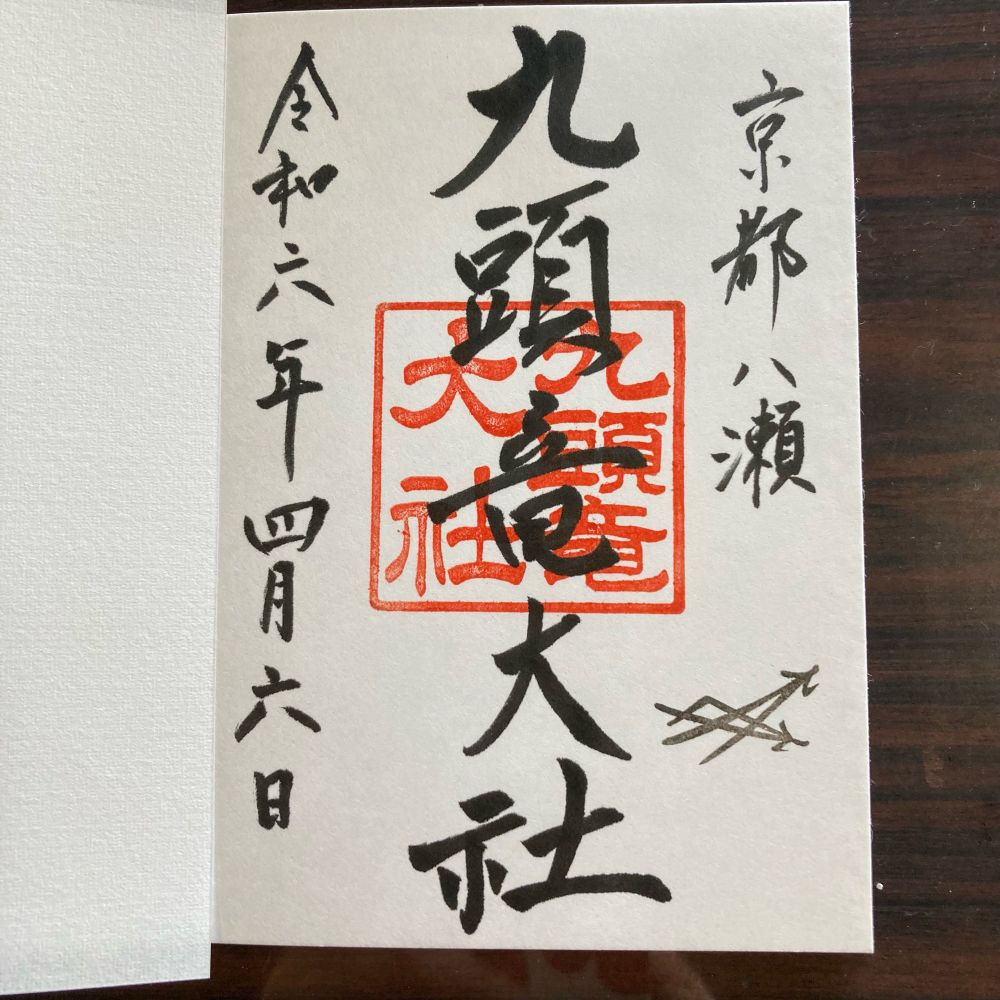 京都八瀬
九頭竜大社
九頭竜
大社
令和六年四月六日